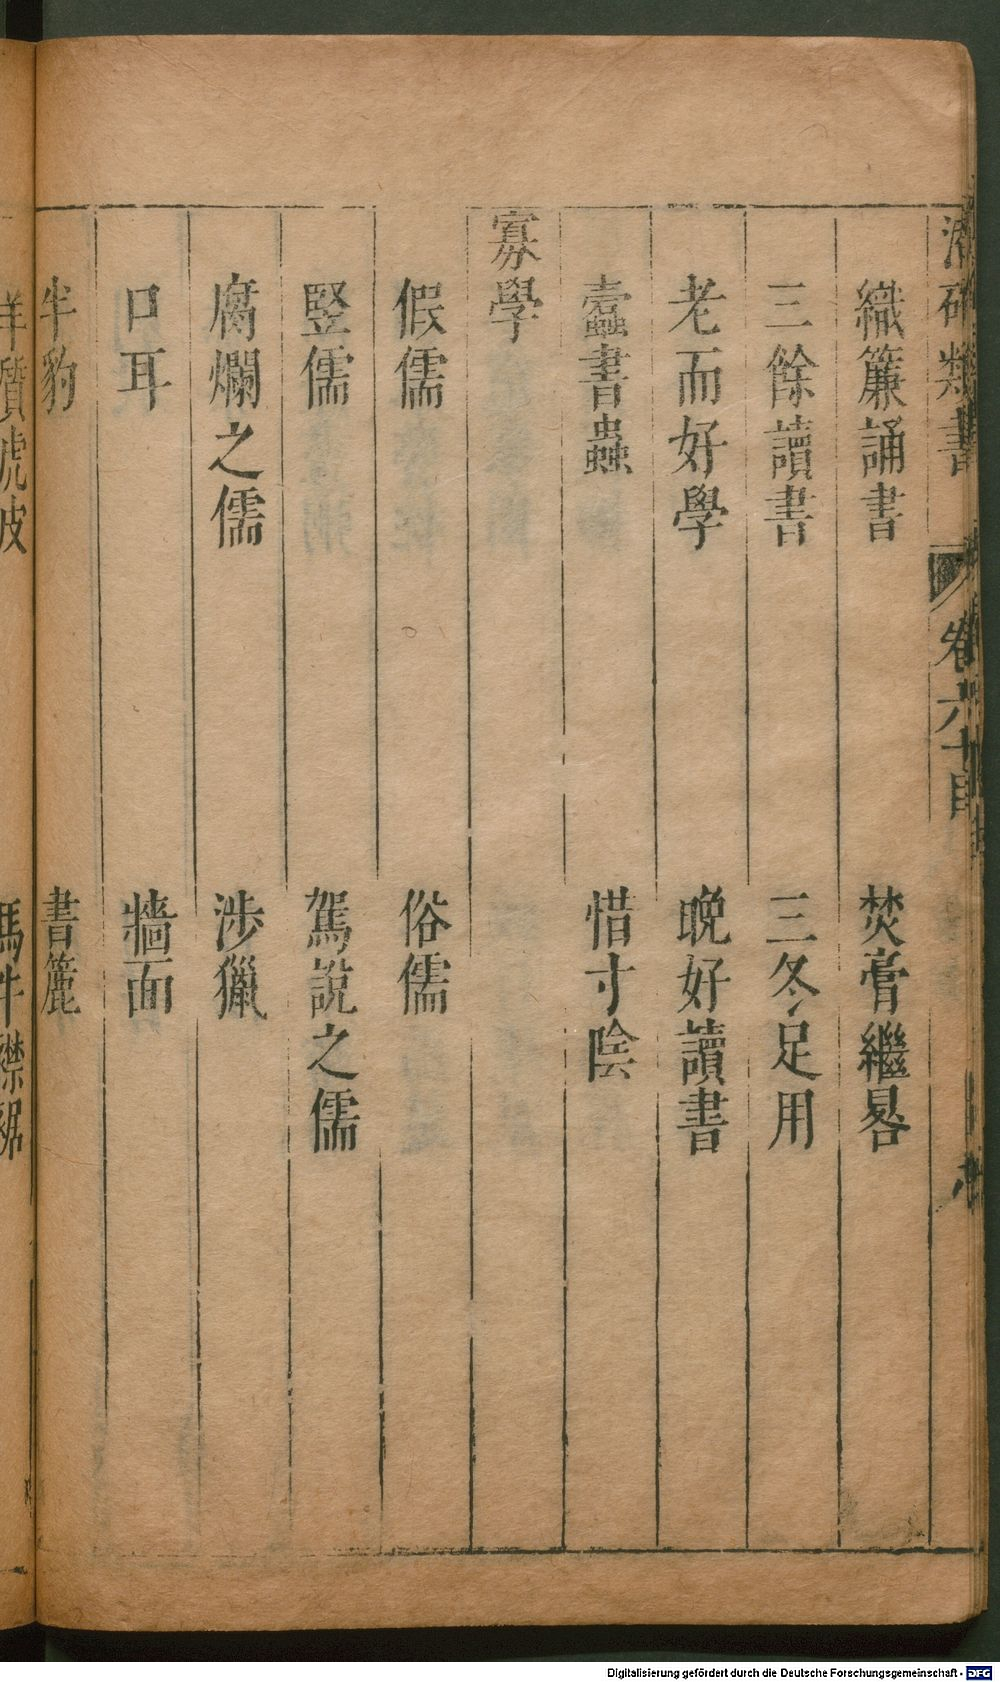 類書 卷六十目
織簾誦書 焚膏繼晷
三餘讀書 三冬足用
老而好學 晚好讀書
蠹書蟲 惜寸陰
寡學
假儒 俗儒
竪儒 駕說之儒
腐爛之儒 涉獵
口耳 牆面
半豹 書簏
羊質虎皮 馬牛襟裾
Digitalisierung gefördert durch die Deutsche Forschungsgemeinschaft - DFG